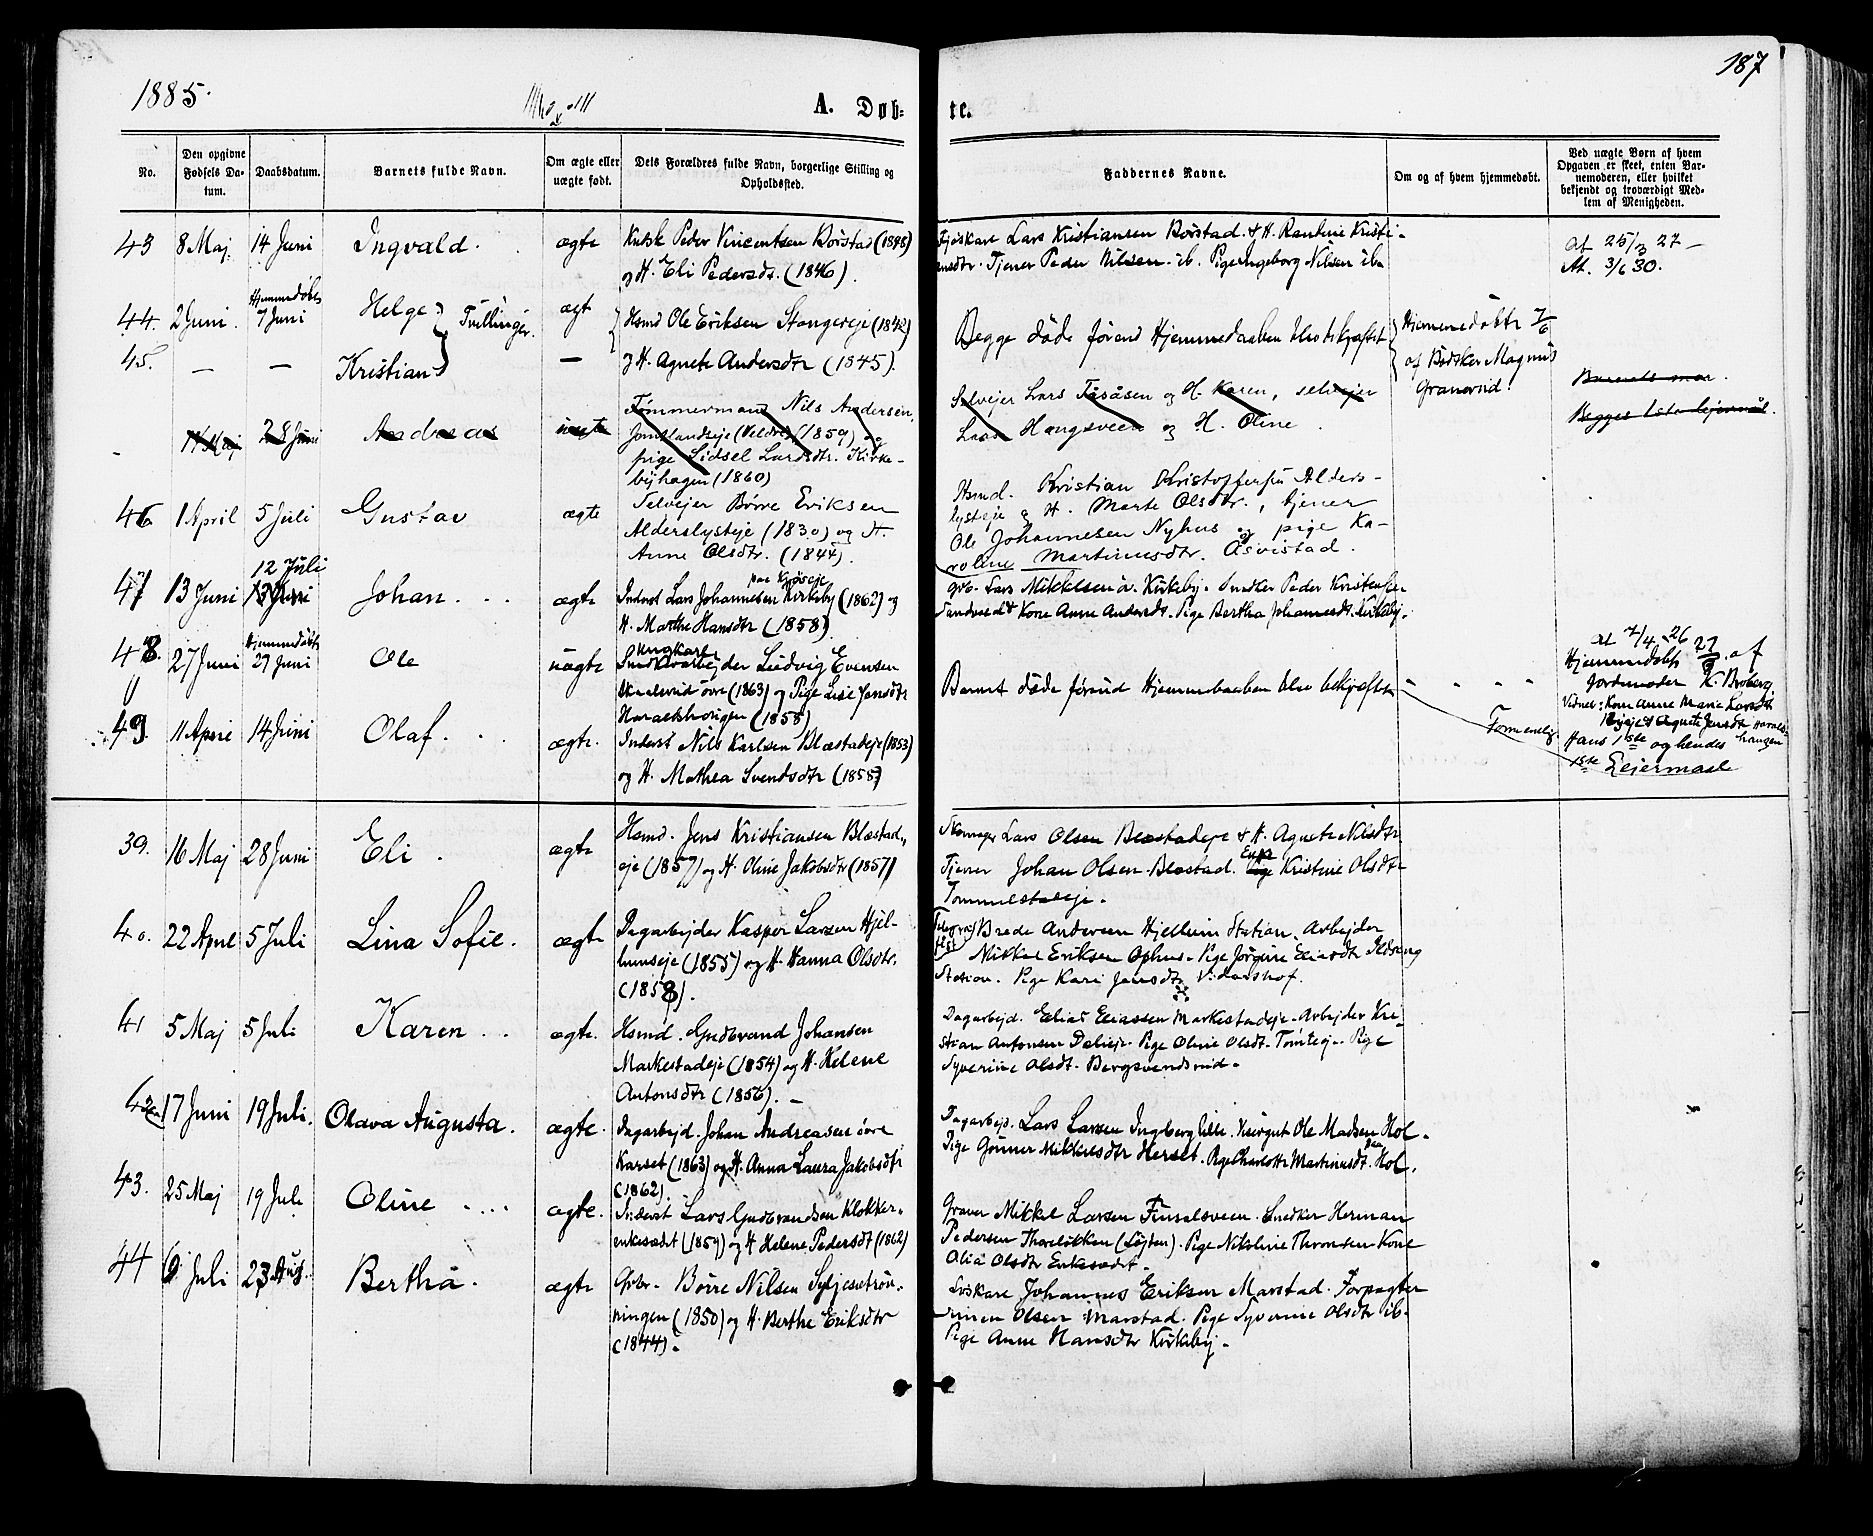 187
1885.
A. Døb-
te.
No.
Den opgivne Fødsels Datum.
Daabsdatum.
Barnets fulde Navn.
Om ægte eller uægte født.
Dets Forældres fulde Navn, borgerlige Stilling og Opholdssted.
Faddernes Navne.
Om og af hvem hjemmedøbt.
Ved uægte Børn af hvem Opgaven er skeet, enten Barnemoderen, eller hvilket bekjendt og troværdigt Medlem af Menigheden.
43 8 Maj. 14 Juni Ingvald. ægte
Kusk Peder Vincentsen Börstad (1848)
og H. Eli Pedersdt. (1846).
Lars Kristiansen Börstad & H. Rantine Kristi-
ansdtr. Tjener Peder Nilsen ib. Pige Ingeborg Nilsen ib.
At 25/3 27 –
At. 3/6 30.
44. 2 Juni. Hjemmedøbt 7 Juni Helge } Tvillinger. ægt
Hsmd Ole Eriksen Stangeeje (1842)
45. — — Kristian —
og H. Agnete Andersdtr (1845).
Begge døde førend Hjemmedaaben blev bekræftet
Hjemmedøbte 7/6
af Bødker Magnus
Granerud.
11 Maj 28 Juni Andreas uægte
Tømmermand Nils Andersen,
Jønslandseje (Veldre) (1859) og
pige Sidsel Larsdtr. Kirke-
byhagen (1860)
Selvejer Lars Fæsåsen og H. Karen, selvejer
Lars Haugsveen og H. Oline.
Barnets mor.
Begges 1ste lejermål.
46 1 April 5 Juli Gustav ægte
Selvejer Børre Eriksen
Alderslysteje (1830) og H.
Anne Olsdtr. (1844).
Hsmd. Kristian Kristoffersen Alders-
lysteje & H. Marte Olsdtr., tjener
Ole Johannesen Nyhus og pige Ka-
roline Martinusdtr. Åsvistad.
47 13 Juni 12 Juli Johan. ægte
Inderst Lars Johannesen Kirkeby (1862) og
H. Marthe Hansdtr (1858)
Lars Mikkelsen Kirkeby. Snedker Peder Kristensen
Kone Anne Andersdt. Pige Bertha Johannesdt. Kirkeby.
48. 27 Juni Hjemmedøbt 27 Juni Ole uægte
Ungkarl
Ludvig Evensen
øvre (1863) og Pige Lise Jensdtr
(1858)
Barnet døde førend Hjemmedaaben blev bekræftet
At 7/4 – 26
Hjemmedøbt 27/6 af
Jordmoder K. Broberg.
Vidner: Kone Anne Marie Larsdtr
Hans 1ste og hendes
1ste Lejermaal
49. 11 April 14 Juni Olaf. ægte.
Inderst Nils Karlsen Blæstadeje (1853)
og H. Mathea Svendsdtr (1858)
39. 16 Maj 28 Juni Eli. ægte
Hsmd. Jens Kristiansen Blæstad-
eje (1857) og H. Oline Jakobsdtr (1857)
Lars Olsen Blæstadeje & H. Agnete Nilsdtr
Tjener Johan Olsen Blæstad. Kristine Olsdtr
Tommelstadeje.
40. 22 April 5 Juli Lina Sofie. ægte
Dagarbejder Kasper Larsen Hjel-
lumseje (1855) og H. Hanna Olsdtr.
(1858).
Brede Andersen Hjellum Station. Arbejder
Mikkel Eriksen Ophus. Pige Jørgine Eliasdtr Ilseng
Station. Pige Kari Jensdtr Vidarshof.
41 5 Maj 5 Juli Karen ægte.
Hsmd. Gudbrand Johansen
Markestadeje (1854) og H. Helene
Antonsdtr (1856). –
Dagarbejd. Elias Eliassen Markestadeje. Arbejder Kri-
stian Antonsen Dælieje. Pige Oline Olsdt. Tomteej. Pige
Syverine Olsdt. Bergsvendsrud.
42 17 Juni 19 Juli. Olava Augusta. ægte.
Dagarbejd. Johan Andreasen øvre
Karset (1863) og H. Anna Laura Jakobsdtr
(1862).
Dagarbejd. Lars Larsen Ingberg lille. Ole Madsen Hol.
Pige Gunner Mikkelsdtr Herset. Pige Charlotte Martinusdt. Hol.
43. 25 Maj 19 Juli Oline ægte.
Inderst Lars Gudbrandsen Klokker-
enkesædet (1859) og H Helene Pedersdt (1862)
Graver Mikkel Larsen Finsalsveen. Snedker Herman
Pedersen Thorsløkken (Løjten). Pige Nikoline Thronsen Kone
Olia Olsdtr Enkesædet.
44 9 Juli 23 Aug. Bertha. ægte
Gbr. Børre Nilsen Syljesætrøn-
ningen (1850) og H. Berthe Eriksdtr
(1844).
Løskarl Johannes Eriksen Marstad. Forpagter
Simen Olsen Marstad. Pige Syverine Olsdtr ib.
Pige Anne Hansdtr Kirkeby.